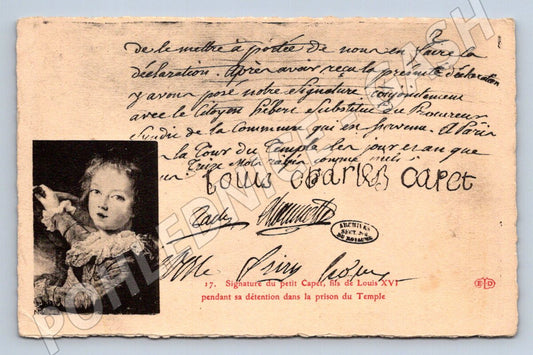 2
de le mettre à portée de nous en faire la
déclaration. Après avoir reçu la présente déclaration
y avons posé notre Signature conjointement
avec le Citoyen hébert Substitut du Procureur
Syndic de la Commune, qui en survenu. A Paris
la Tour du Temple les jour et an que
Trois Mots rayés comme nuls
Louis Charles Capet
ARCHIVES
DU ROYAUME
17. Signature du petit Capet, fils de Louis XVI
pendant sa détention dans la prison du Temple
ED
POHLEDNICE - CASH